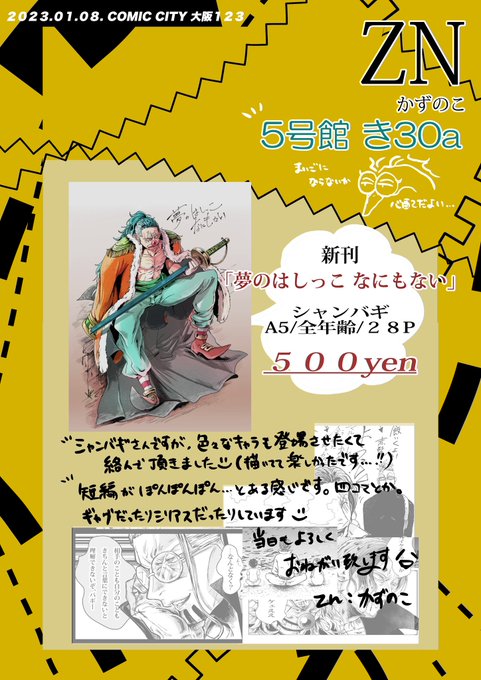 2023.01.08. COMIC CITY 大阪123
ZN
かずのこ
5号館 き30a
まいごに
ならないか
心配でだよい…
夢のはしっこ
なにもない
新刊
「夢のはしっこ なにもない」
シャンバギ
A5/全年齢/28P
500yen
シャンバギさんですが、色々なキャラも登場させたくて
絡んで頂きました(描いてて楽しかったです…!!)
短編がぽんぽんぽん…とある感じです。四コマとか。
ギャグだったりシリアスだったりしています
当日もよろしく
おねがい致します
ZN:かずのこ
相手のことも自分のことも
きちんと正量にできないと
理解できないぞ、バギー